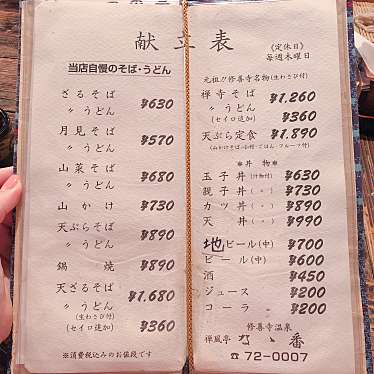 献立表
(定休日)
毎週木曜日
当店自慢のそば・うどん
ざるそば
〃 うどん ¥630
月見そば
〃 うどん ¥570
山菜そば
〃 うどん ¥680
山かけ ¥730
天ぷらそば
〃 うどん ¥890
鍋焼 ¥890
天ざるそば
〃 うどん ¥1,680
(生わさび付)
(セイロ追加) ¥360
※消費税込みのお値段です
元祖!!修善寺名物(生わさび付)
禅寺そば
〃 うどん ¥1,260
(セイロ追加) ¥360
天ぷら定食 ¥1,890
丼物
玉子丼(汁物付) ¥630
親子丼(〃) ¥730
カツ丼(〃) ¥890
天丼(〃) ¥990
地ビール(中) ¥700
ビール(中) ¥600
酒 ¥450
ジュース ¥200
コーラ ¥200
修善寺温泉
禅風亭 な丶番
☎72-0007